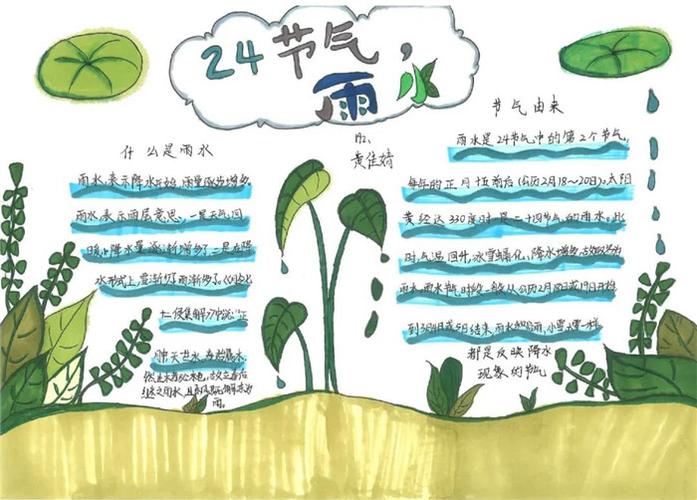 24节气,
雨水
黄佳婧
什么是雨水
雨水表示降水开始,雨量逐步增多。
雨水表示两层意思,一是天气回
暖,降水量逐渐增多了,二是在降
水形式上,雪渐少了,雨渐多了。《月令》
七十二候集解》中说:"正
月中,天生水。春始属水,
然生木者必水也,故立春后
继之雨水。且东风既解冻,则为
雨。
节气由来
雨水是24节气中的第2个节气,
每年的正月十五前后(公历2月18~20日),太阳
黄经达330度时,是二十四节气的雨水。此
时,气温回升、冰雪融化、降水增多,故取名为
雨水。雨水节气时段一般从公历2月18日或19日开始,
到3月4日或5日结束。雨水和谷雨、小雪、大雪一样,
都是反映降水
现象的节气